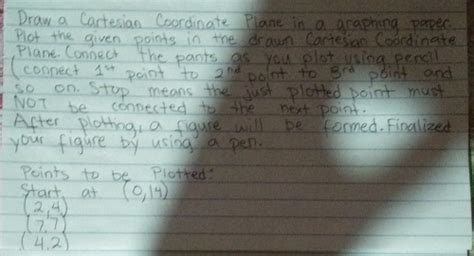 Draw a Cartesian Coordinate Plane in a graphing paper.
Plot the given points in the drawn Cartesian Coordinate
Plane. Connect the pants as you plot using pencil
(connect 1st point to 2nd point to 3rd point and
so on. Stop means the just plotted point must
NOT be connected to the next point.
After plotting, a figure will be formed. Finalized
your figure by using a pen.
Points to be Plotted:
Start at (0,14)
(2,4)
(7,7)
(4,2)